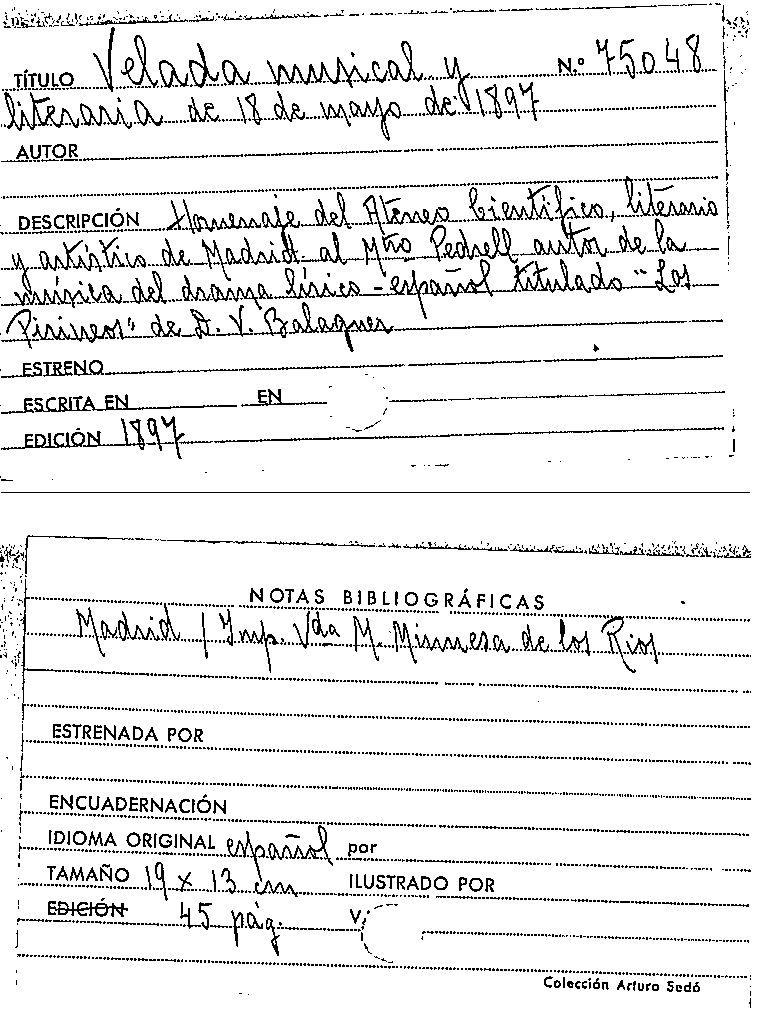 TÍTULO Velada musical y N.º 75048
literaria de 18 de mayo de 1897
AUTOR
DESCRIPCIÓN Homenaje del Ateneo Científico, literario
y artístico de Madrid al Mtro Pedrell autor de la
música del drama lírico - español titulado "Los
Pirineos" de D. V. Balaguer
ESTRENO
ESCRITA EN EN
EDICIÓN 1897
NOTAS BIBLIOGRÁFICAS
Madrid / Imp. Vda M. Minuesa de los Rios
ESTRENADA POR
ENCUADERNACIÓN
IDIOMA ORIGINAL español por
TAMAÑO 19 x 13 cm ILUSTRADO POR
EDICIÓN 45 pág. V.
Colección Arturo Sedó